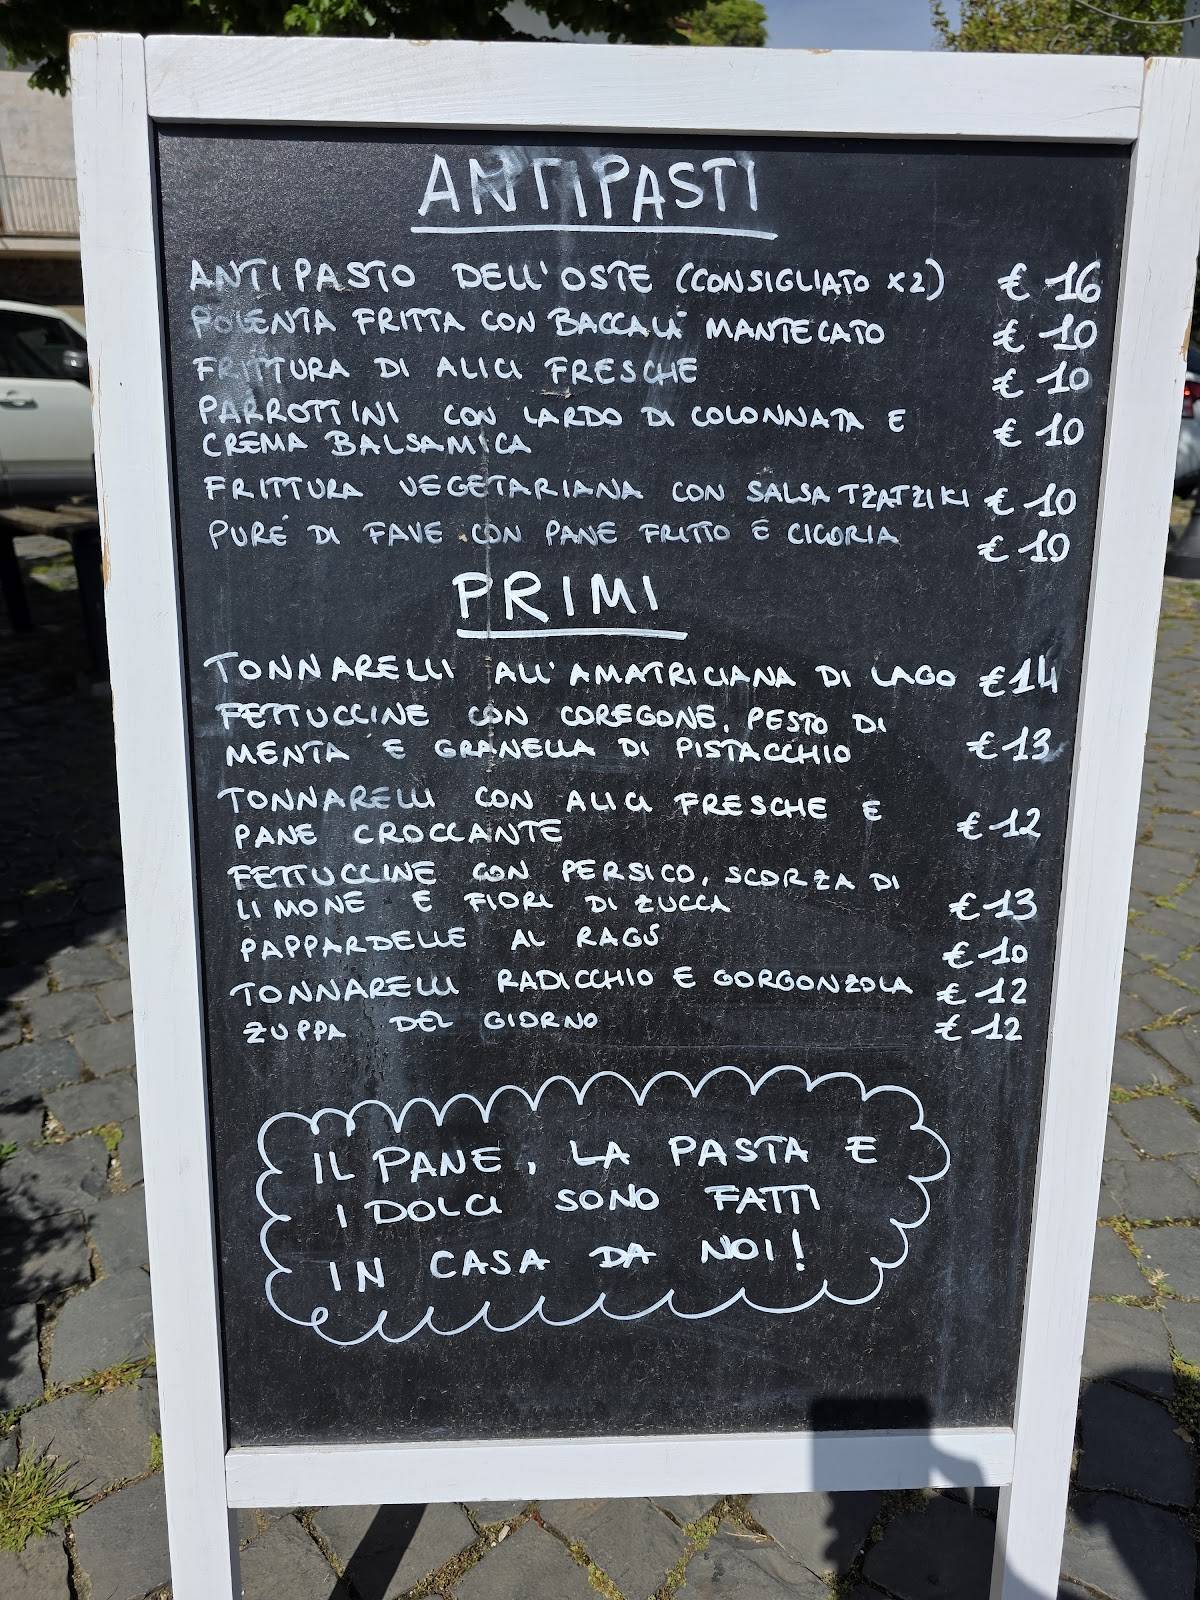 ANTIPASTI
ANTIPASTO DELL'OSTE (CONSIGLIATO X2) € 16
POLENTA FRITTA CON BACCALÀ MANTECATO € 10
FRITTURA DI ALICI FRESCHE € 10
PARROTTINI CON LARDO DI COLONNATA E
CREMA BALSAMICA € 10
FRITTURA VEGETARIANA CON SALSA TZATZIKI € 10
PURÉ DI FAVE CON PANE FRITTO E CICORIA € 10
PRIMI
TONNARELLI ALL'AMATRICIANA DI LAGO €14
FETTUCCINE CON COREGONE, PESTO DI
MENTA E GRANELLA DI PISTACCHIO €13
TONNARELLI CON ALICI FRESCHE E
PANE CROCCANTE €12
FETTUCCINE CON PERSICO, SCORZA DI
LIMONE E FIORI DI ZUCCA €13
PAPPARDELLE AL RAGÚ €10
TONNARELLI RADICCHIO E GORGONZOLA € 12
ZUPPA DEL GIORNO € 12
IL PANE, LA PASTA E
I DOLCI SONO FATTI
IN CASA DA NOI!